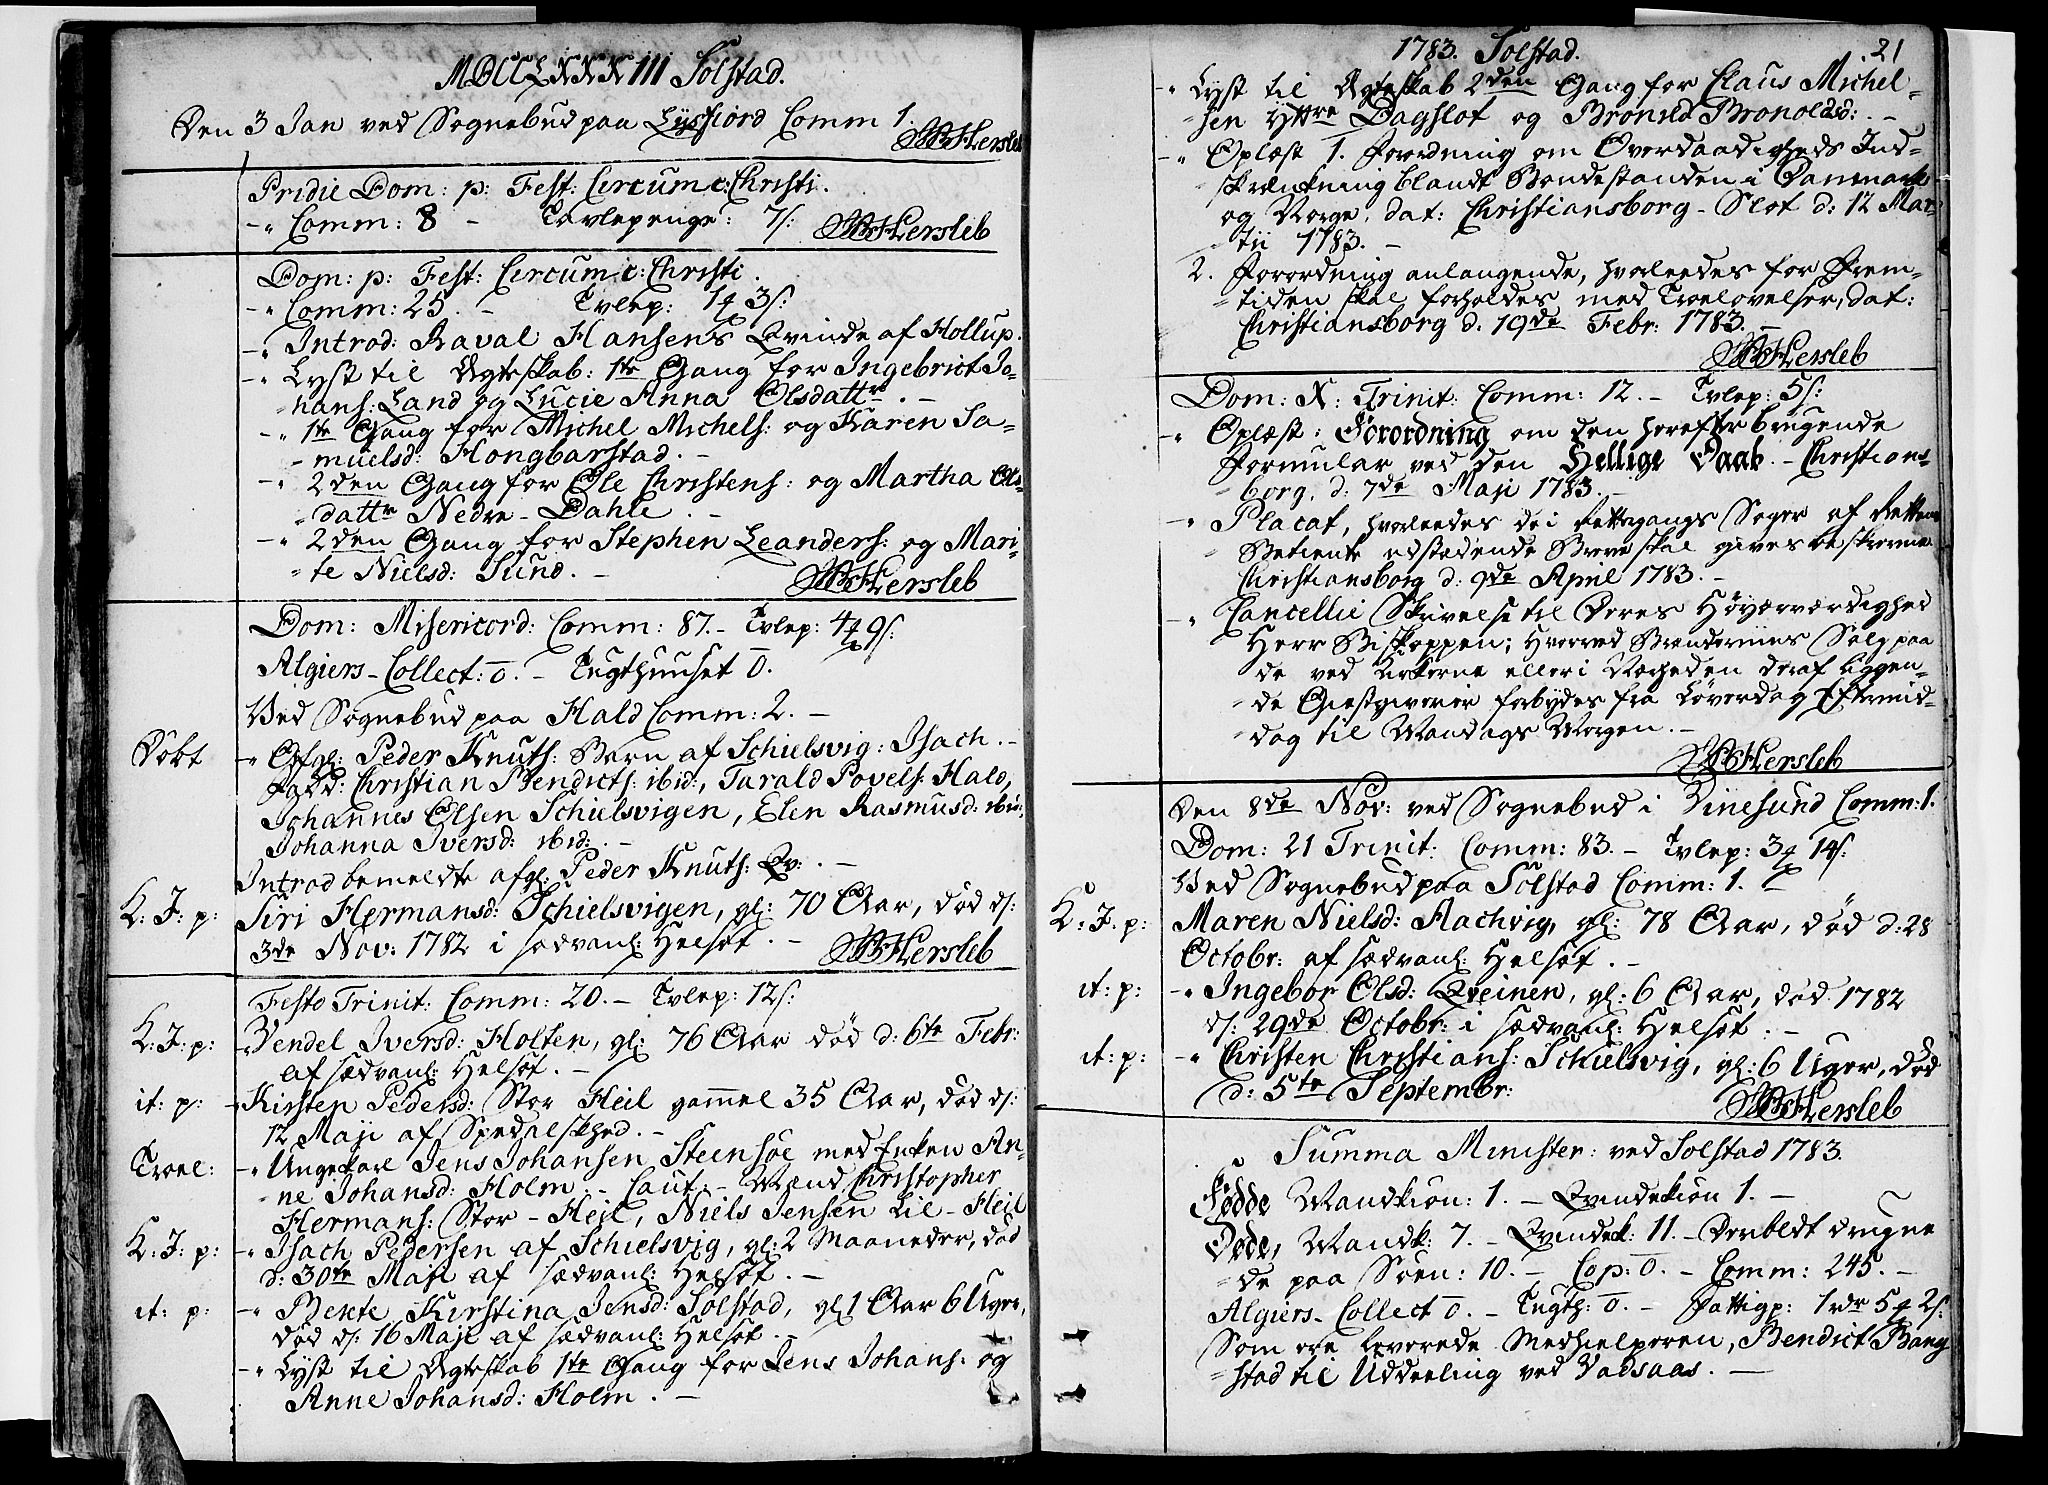 MDCCLXXXIII Solstad.
Den 3 Jan ved Sognebud paa Lysfiord Comm 1.
JBHersleb
Pridie Dom: p: Fest: Circumc: Christi.
-" Comm: 8 - Tavlepenge: 7s:
JBHersleb
Dom: p: Fest: Circumc: Christi.
-" Comm: 25. - Tvlep: 1 3s:
-" Introd: Raval Hansens Qvinde af Hollup.
-" Lyst til Ægteskab: 1te Gang for Ingebrict Jo-
hans: Land og Lucie Anna Olsdattr. -
-" 1te Gang for Michel Michels: og Karen Sa-
muelsd: Hongbarstad. -
-" 2den Gang for Ole Christens: og Martha Ols-
dattr Nedre - Dahle. -
-" 2den Gang for Stephen Leanders: og Mari-
te Nielsd: Sund. -
JBHersleb
Dom: Misericord: Comm: 87. - Tvlep: 4 9s:
Algiers - Collect: 0. - Tugthuuset 0.
Ved Sognebud paa Hald Comm: 2. -
Døbt -" Afgl: Peder Knuts: Barn af Schielsvig: Isach. -
Fadd: Christian Bendicts: ibid:, Tarald Povels: Hald,
Johannes Olsen Schielsvigen, Elen Rasmusd: ibid:,
Johanna Iversd: ibid: -
Introd bemeldte afgl: Peder Knuts: Qv: -
K: J: p: Siri Hermansd: Schielsvigen, gl: 70 Aar, død d:
3de Nov: 1782 i sædvanl: Helsot. -
JBHersleb
Festo Trinit: Comm: 20. - Tvlep: 12s:
K: J: p: -" Vendel Iversd: Holten, gl: 76 Aar død d: 6te Febr:
af sædvanl: Helsot. -
it: p: -" Kirsten Pedersd: Stor Heil gammel 35 Aar, død d:
12 Maji af Spedalskhed. -
Troel: -" Ungekarl Jens Johansen Steensøe med Enken An-
ne Johansd: Holm. - Caut: - Mænd Christopher
Hermans: Stor - Heil, Niels Jensen Lil - Heil
K: J: p: -" Isach Pedersen af Schielsvig, gl: 2 Maaneder, død
d: 30te Maji af sædvanl: Helsot. -
it: p: -" Bente Kirstina Jensd: Solstad, gl 1 Aar 6 Uger,
død d: 16 Maji af sædvanl: Helsot. -
-" Lyst til Ægteskab 1te Gang for Jens Johans: og
Anne Johansd: Holm. -
1783. Solstad. 21
-" Lyst til Ægteskab 2den Gang for Claus Michel-
sen Yttre Dagslot og Bronild Bronoldsd: -
-" Oplæst 1. Forordning om Overdaadigheds Ind-
skrænkning blandt Bondestanden i Danmark
og Norge. dat: Christiansborg - Slot d: 12 Mar-
tii 1783. -
2. Forordning anlangende, hvorleedes for Frem-
tiden skal forholdes med Troelovelser, dat:
Christiansborg d. 19de Febr: 1783. -
JBHersleb
Dom: X: Trinit: Comm: 12. - Tvlep: 5s:
-" Oplæst: Forordning om den herefter brugende
Formular ved den Hellige Daab. - Christians-
borg, d: 7de Maji 1783. -
-" Placat, hvorleedes de i Rettergangs Sager af Rettens
Betiente udstædende Breve skal gives beskrevne
Christiansborg d: 9de April 1783. -
-" Cancellie Skrivelse til Deres Høyærværdighed
Herr Biskoppen; Hvorved Brændeviins Salg paa
de ved Kirkerne eller i Nærheden deraf liggen-
de Giestgiverier forbydes fra Løverdag Eftermid-
dag til Mandags Morgen. -
JBHersleb
Den 8de Nov: ved Sognebud i Vinesund Comm: 1.
Dom: 21 Trinit: Comm: 83. - Tvlep: 3 14s:
Ved Sognebud paa Solstad Comm: 1. -
K: J: p: Maren Nielsd: Aachvig, gl: 78 Aar, død d: 28
Octobr: af sædvanl: Helsot. -
it: p: -" Ingebor Olsd: Qveinen, gl: 6 Aar, død 1782
d: 29de Octobr: i sædvanl: Helsot. -
it: p: -" Christen Christians: Schielsvig, gl: 6 Uger, død
d: 5te Septembr:
JBHersleb
Summa Minister: ved Solstad 1783.
Fødde Mandkiøn: 1. - Qvindekiøn 1. -
Døde, Mandk: 7. - Qvindek: 11. - Deribldt drugne
de paa Søen: 10. - Cop: 0. - Comm: 245. -
Algiers - Collect 0. - Tugth: 0. - Fattigp: 1 rdr 5 2s:
Som ere leverede Medhielperen, Bendict Bang
stad til Uddeeling ved Vadsaas. -